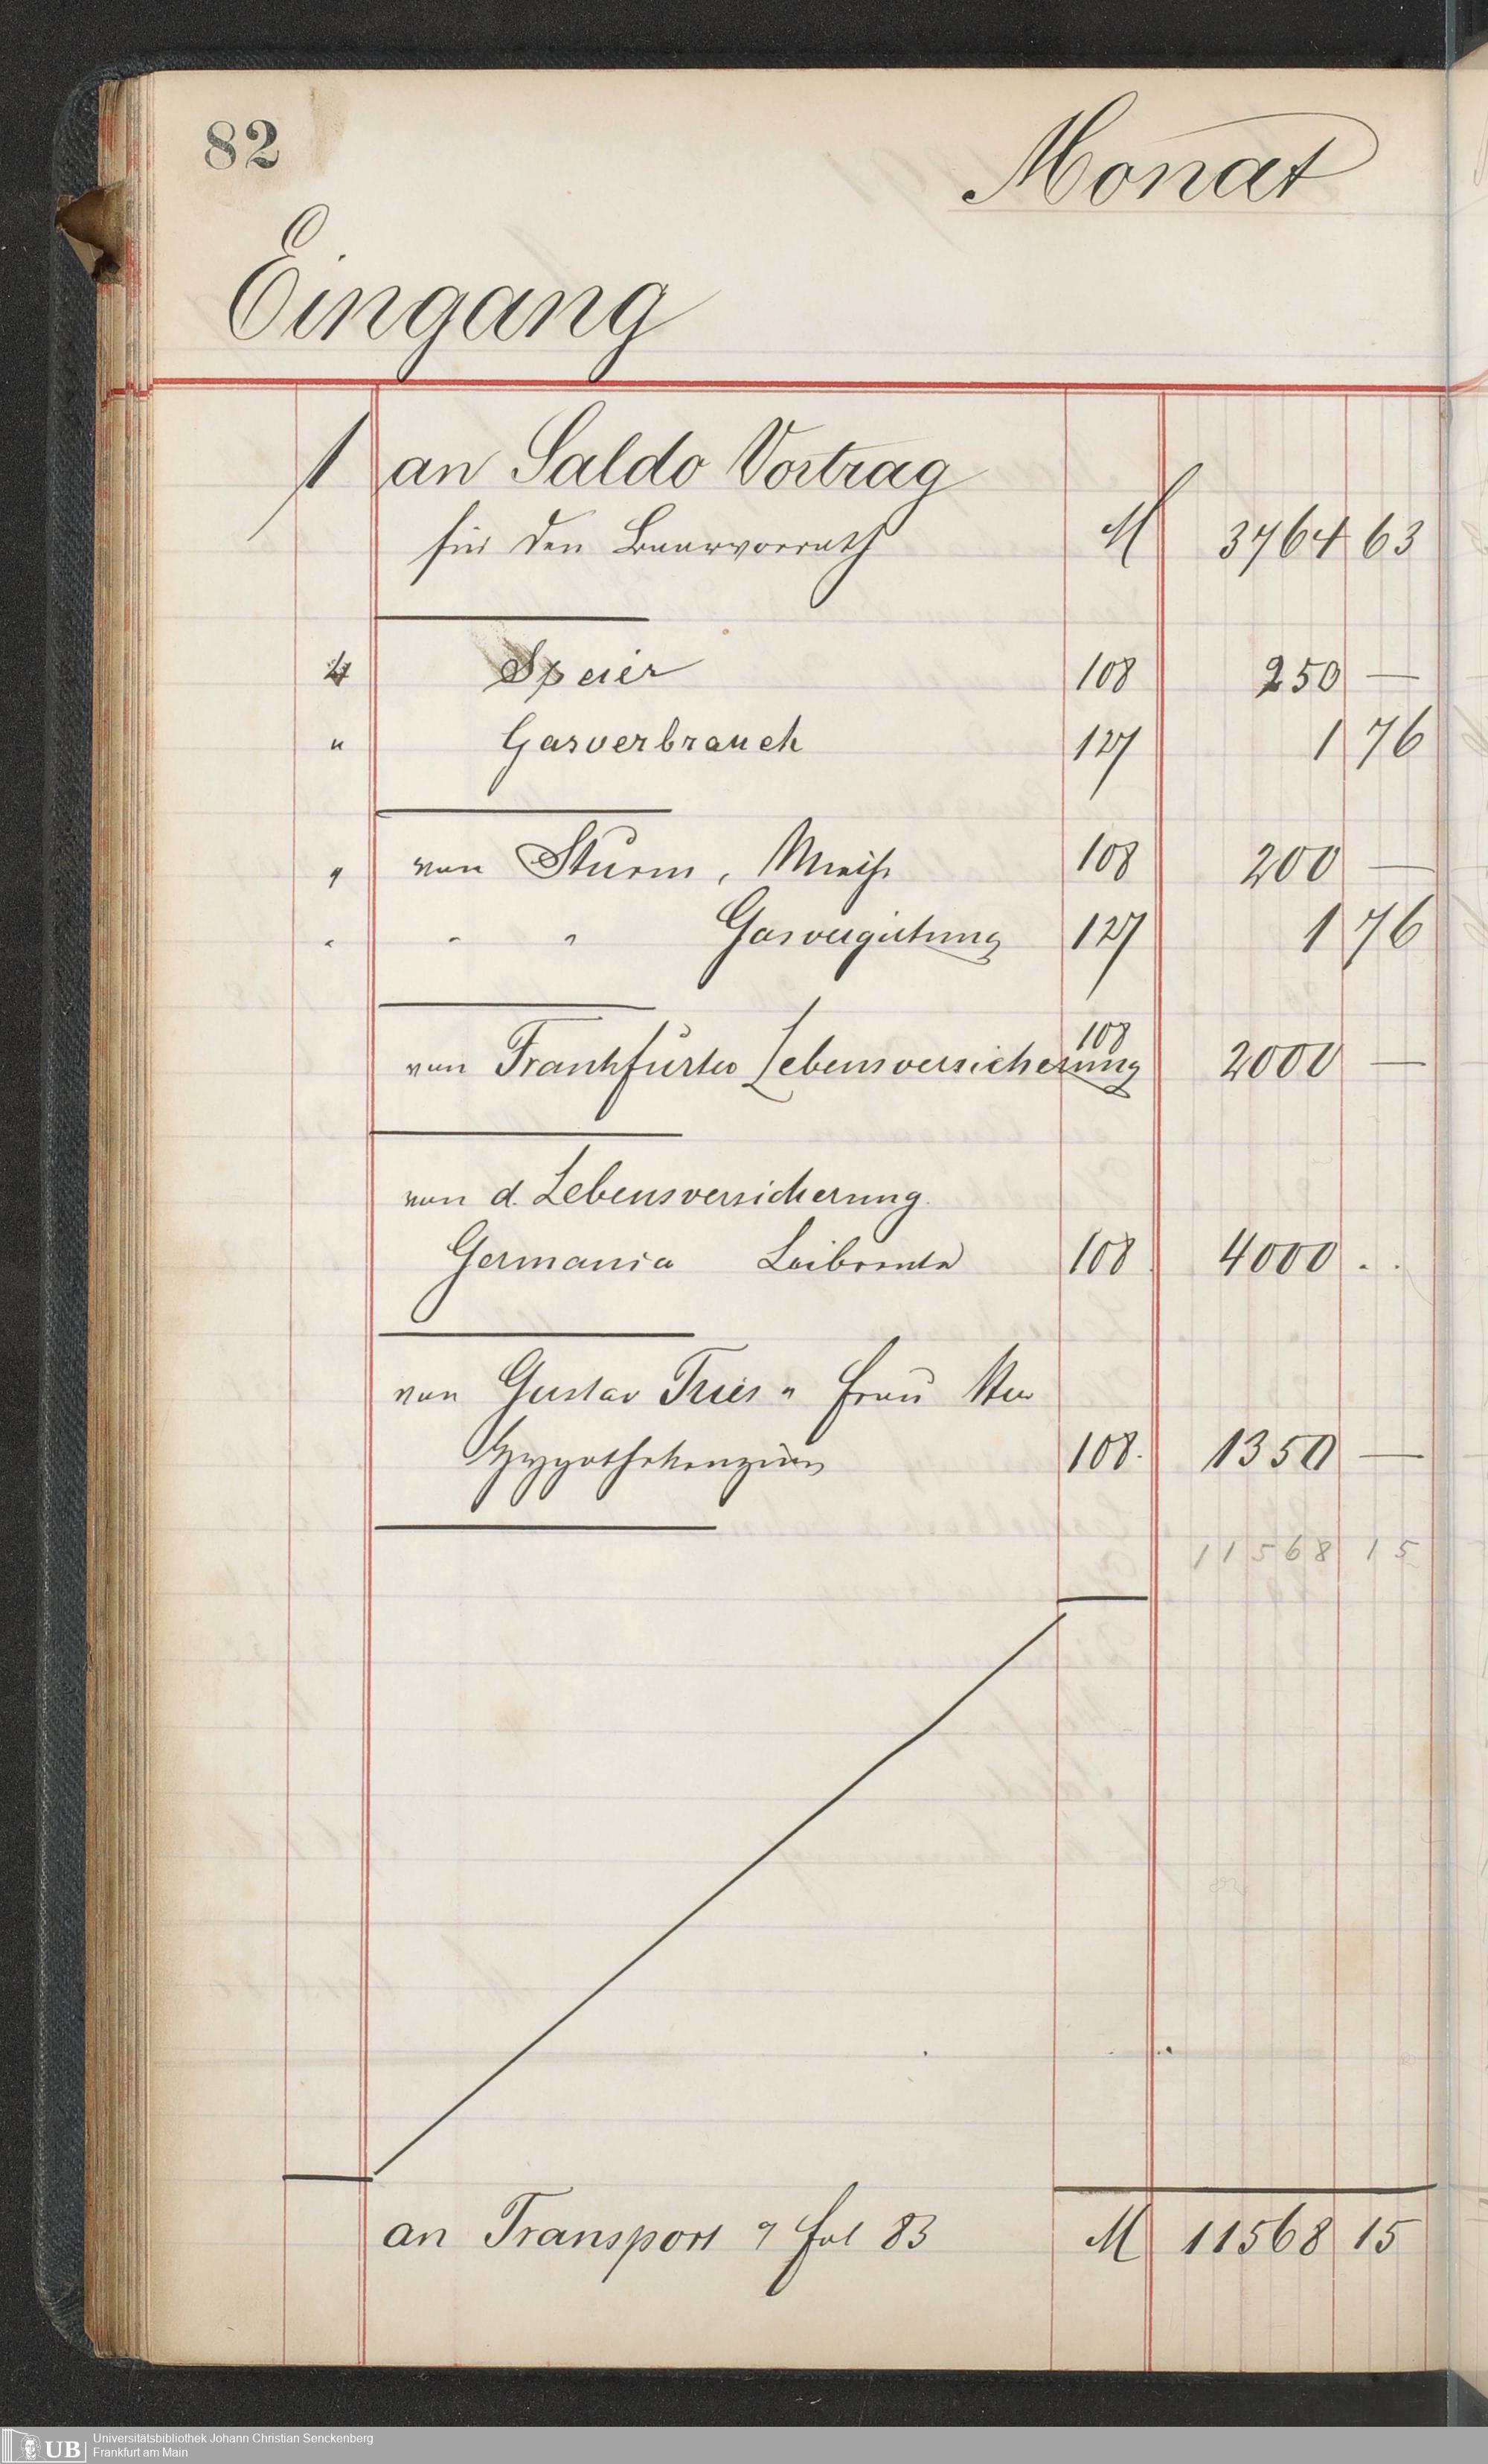 82
Monat
Eingang
1 an Saldo Vortrag
für den Baarvorrath M 3764 63
4 Speier 108 250 —
" Gasverbrauch 127 1 76
" von Sturm, Miethe 108 200 —
" " " Gasvergütung 127 1 76
von Frankfurter Lebensversicherung 108 2000 —
von d. Lebensversicherung
Germania Leibrente 108 4000 . .
von Gustav Fries " Frau
Hypothekenzins 108. 1350 —
11568 15
an Transport " fol 83 M 11568 15
UB
Universitätsbibliothek Johann Christian Senckenberg
Frankfurt am Main